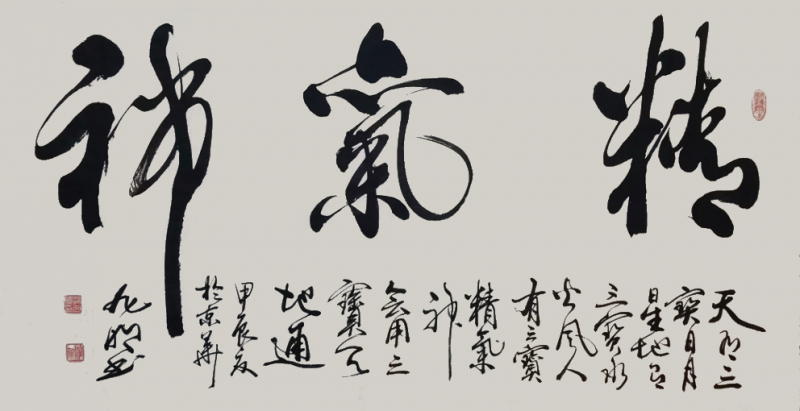 精氣神
天有三
寶日月
星地有
三寶水
火風人
有三寶
精氣
神
会用三
寶天
地通
甲辰夏
於京華